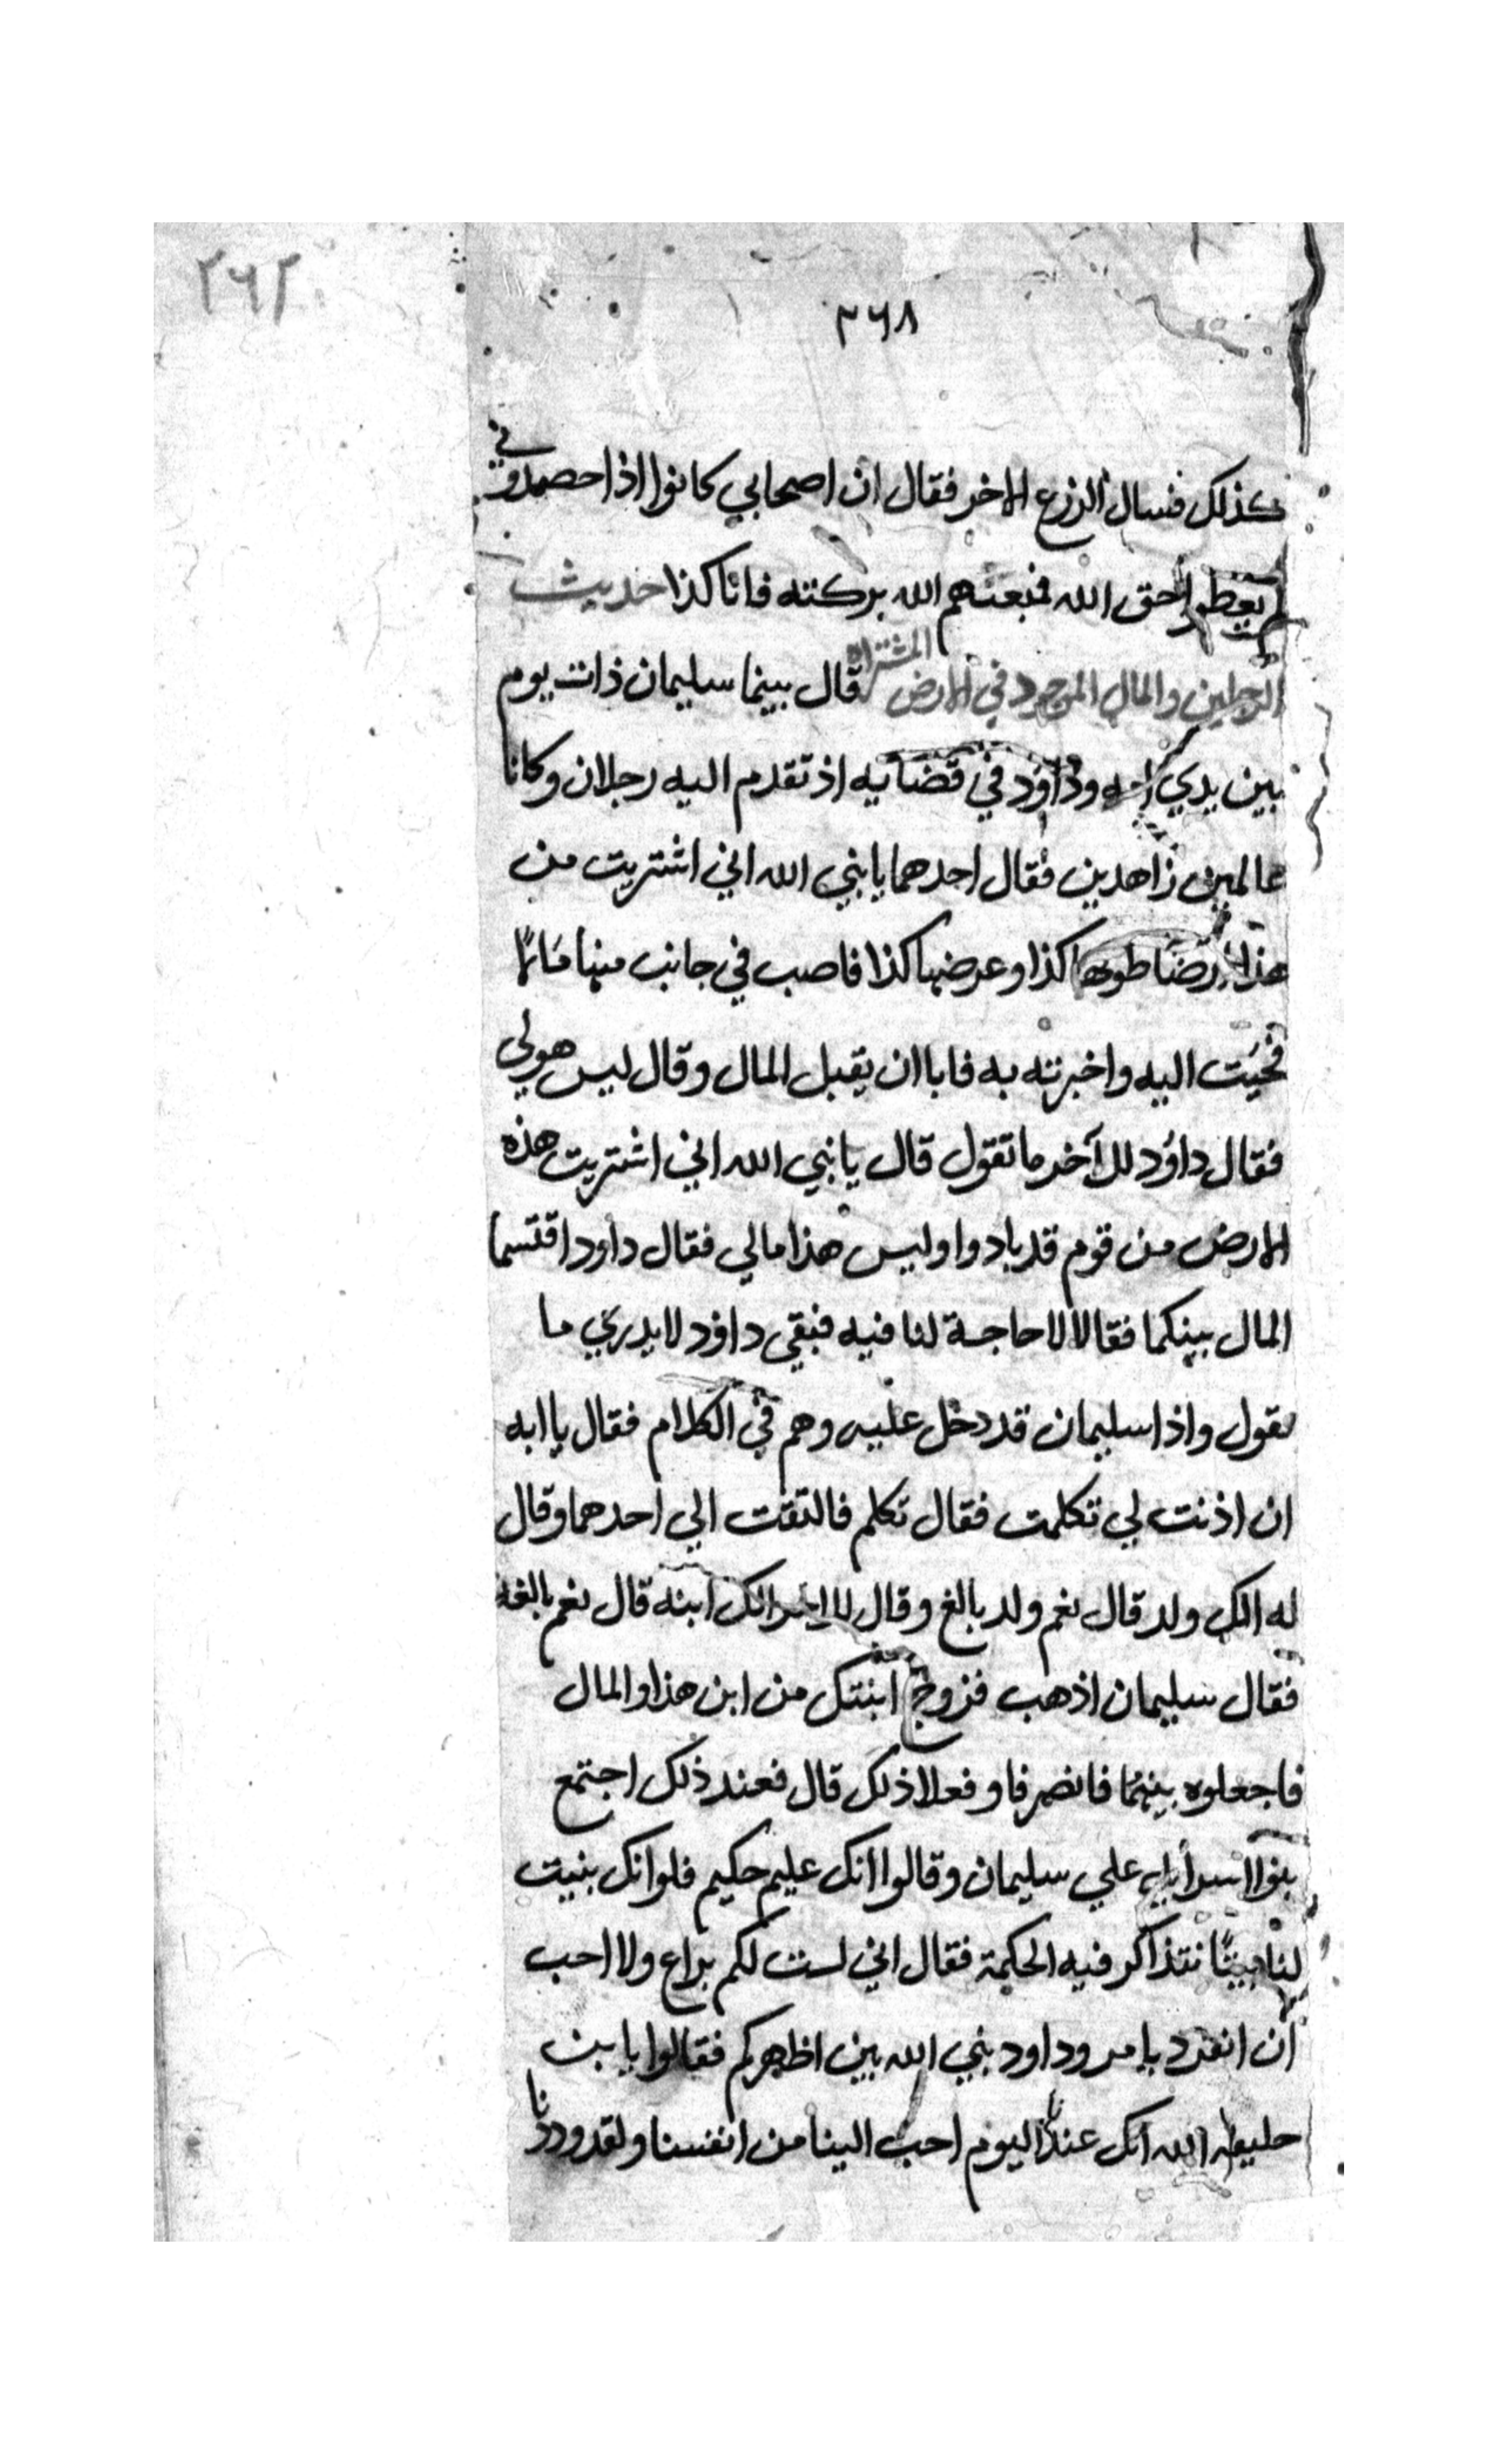 ٢٦٢
٣٦٨
كذلك فسال الزرع الاخر فقال ان اصحابي كانوا اذا حصدوني
لم يعطوا حق الله فمنعهم الله بركته فانا كذا حديث
الرجلين والمال الموجود في الارض المشتراه قال بينما سليمان ذات يوم
بين يدي ابيه وداود في قضائيه اذ تقدم اليه رجلان وكانا
عالمين زاهدين فقال احدهما يا نبي الله اني اشتريت من
هذا ارضا طولها كذا وعرضها كذا فاصب في جانب منها مالًا
فجيت اليه واخبرته به فابا ان يقبل المال وقال ليس هو لي
فقال داود للآخر ما تقول قال يا نبي الله اني اشتريت هذه
الارض من قوم قد بادوا وليس هذا مالي فقال داود اقتسما
المال بينكما فقالا لا حاجة لنا فيه فبقي داؤد لا يدري ما
يقول واذا سليمان قد دخل عليه وهم في الكلام فقال يا ابه
ان اذنت لي تكلمت فقال تكلم فالتفت الي احدهما وقال
له الك ولد قال نعم ولد بالغ وقال للاخر الك ابنه قال نعم بالغه
فقال سليمان اذهب فزوج ابنتك من ابن هذا والمال
فاجعلوه بينهما فانصرفا وفعلا ذلك قال فعند ذلك اجتمع
بنوا اسرأيل علي سليمان وقالوا انك عليم حكيم فلو انك بنيت
لنا بيتًا نتذاكر فيه الحكمة فقال اني لست لكم براع ولا احب
ان انفرد بامر وداود نبي الله بين اظهركم فقالوا يا بن
خليفه الله انك عندنا اليوم احب الينا من انفسنا ولقد وددنا